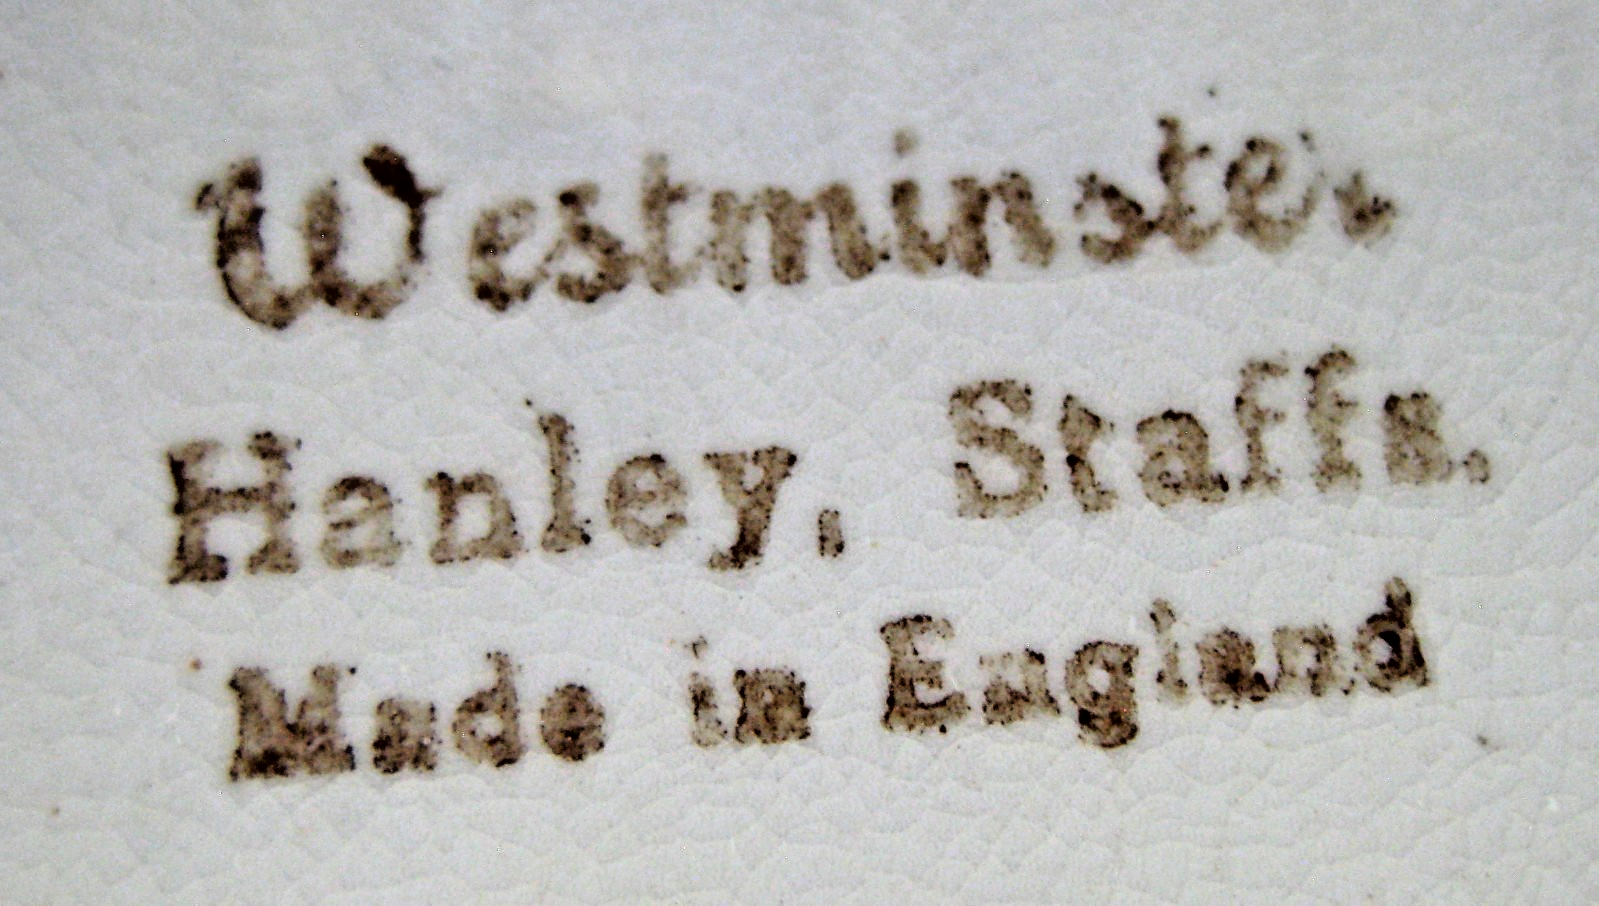 Westminster
Hanley, Staffs.
Made in England